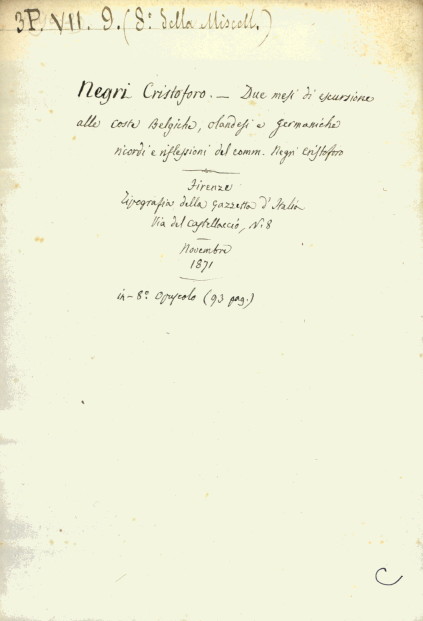 3P. VII. 9. (8º della Miscell.)
Negri Cristoforo. — Due mesi di escursione
alle coste Belgiche, olandesi e germaniche
ricordi e riflessioni del comm. Negri Cristoforo
Firenze
Tipografia della Gazzetta d'Italia
Via del Castellaccio, N. 8
Novembre
1871
in-8º Opuscolo (93 pag.)
C